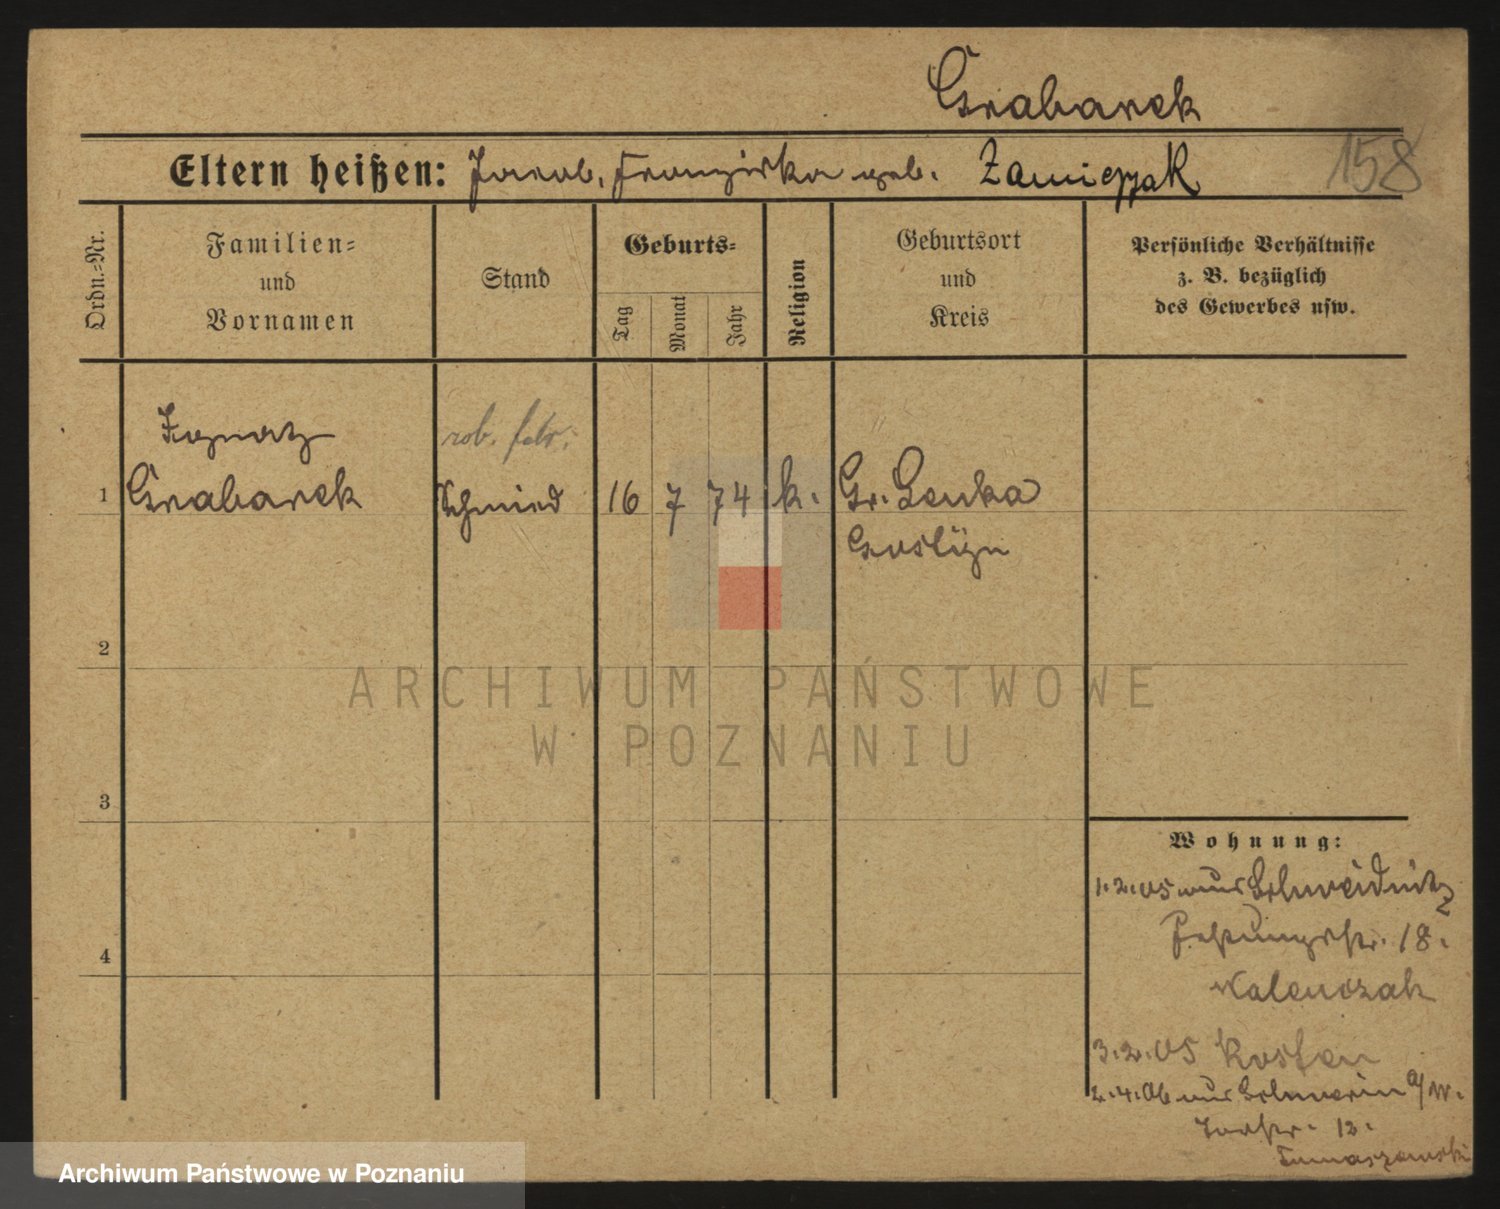 Grabarek
158
Eltern heißen: Jacob, Franziska geb. Zamiczak
Ordn.-Nr.
Familien-
und
Vornamen
Stand
Geburts-
Tag
Monat
Jahr
Religion
Geburtsort
und
Kreis
Persönliche Verhältnisse
z. B. bezüglich
des Gewerbes usw.
Ignatz
rob. fabr.
1
Grabarek
Schmied
16
7
74
k.
Gr. Lenka
Gostÿn
2
ARCHIWUM PAŃSTWOWE
W POZNANIU
3
Wohnung:
1.2.05 aus Schweidnitz
18.
Walenczak
4
3.2.05 Kosten
2.4.06 aus Schwerin a/W.
12.
Tomaszewski
Archiwum Państwowe w Poznaniu